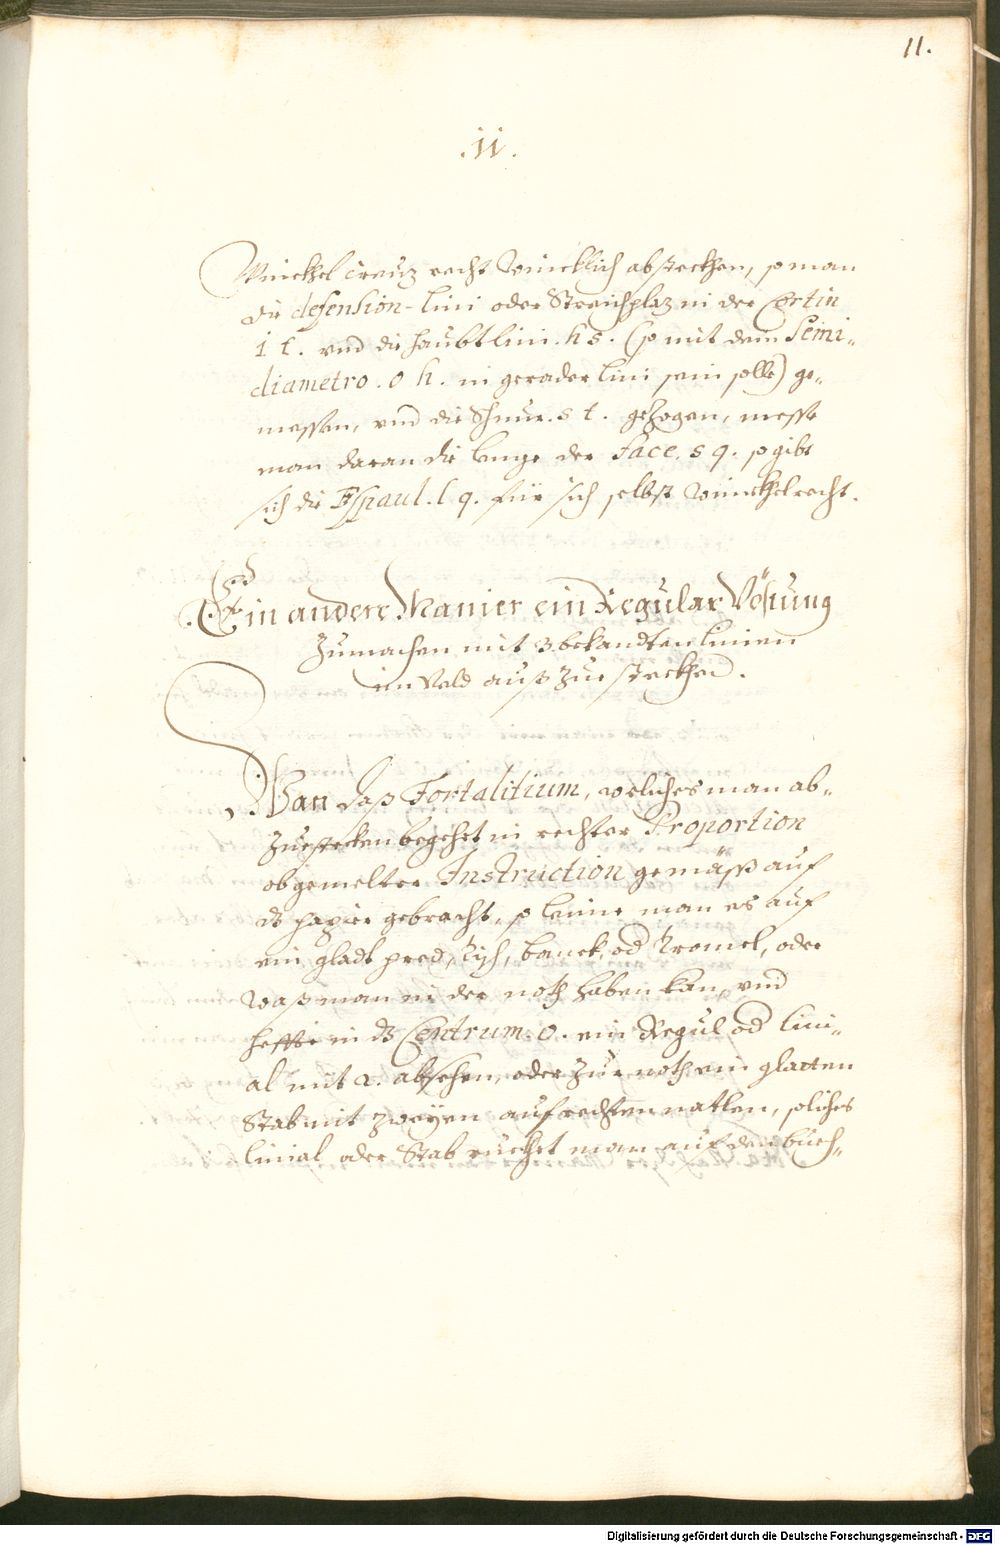 11.
.ii.
Winckhel creuz recht winecklich absteckhen, so man
die defension-lini oder Streichplaz in der Cortin
i t. vnd die haubtlini. h s. (so mit dem Semi„
diametro. o h. in gerader lini sein solle) ge„
messen, vnd die Schnur. s t. gezogen, messe
man daran die lenge der Face. s q. so gibt
sich die Espaul. l q. für sich selbst winckhelrecht.
Ein andere Manier ein Regular Vösstung
Zumachen mit 3 bekandten linien
im Veld auß Zue steckhen.
Wan daß Fortalitium, weliches man ab„
Zuesteckhen begehrt in rechter Proportion
obgemelter Instruction gemäß auf
dz papier gebracht, so leime man es auf
ein gladt pred, tisch, banck, od Tromel, oder
waß man in der noth haben kan, vnd
heffte in dz Centrum. o. ein Regul od lini„
al mit 2. absehen, oder Zur noth ein glatten
Stab mit zweyen aufrechten natlen, soliches
linial oder Stab ruckhet man auf den buch„
Digitalisierung gefördert durch die Deutsche Forschungsgemeinschaft - DFG